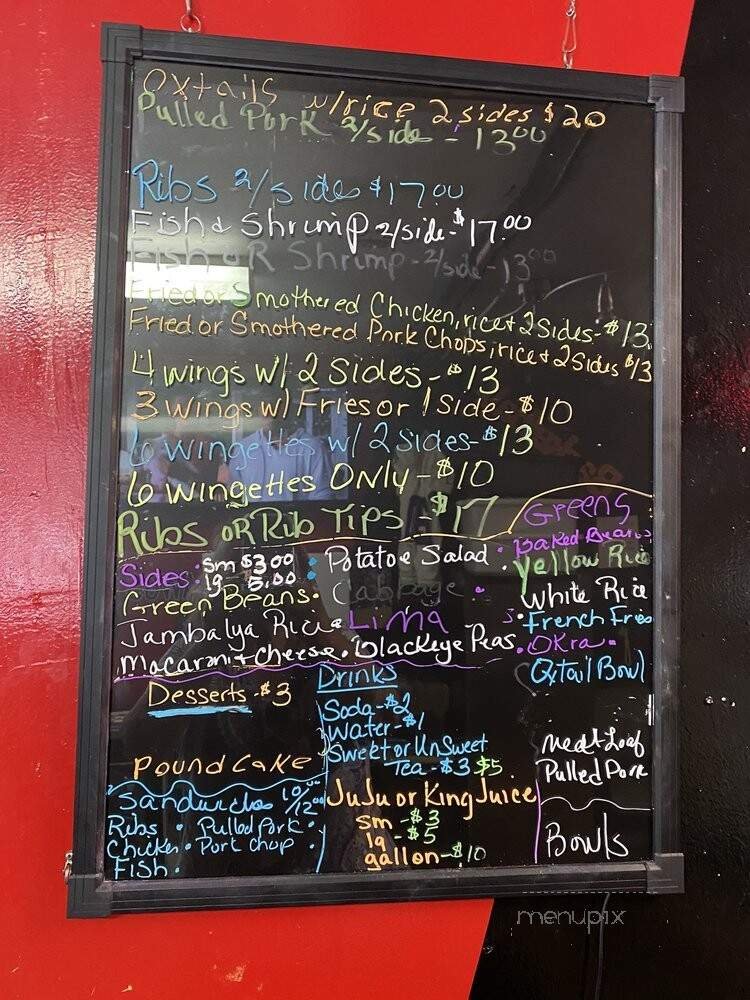 Oxtails w/rice 2 sides $20
Pulled Pork 2/side - 13.00
Ribs 2/side $17.00
Fish & Shrimp 2/side - $17.00
Fish oR Shrimp - 2/side - 13.00
Fried or Smothered Chicken, rice + 2 Sides - $13.
Fried or Smothered Pork Chops, rice + 2 Sides $13
4 wings w/ 2 Sides - $13
3 wings w/ Fries or 1 Side - $10
6 wingettes w/ 2 Sides - $13
6 wingettes ONLY - $10
Ribs oR Rib Tips - $17
Greens
Baked Beans
Yellow Rice
White Rice
French Fries
OKra
Oxtail Bowl
Sides • Sm $3.00
lg - 5.00
• Potatoe Salad •
Green Beans • Cabbage •
Jambalya Rice Lima
Macaroni + Cheese • Blackeye Peas •
Desserts - $3
Pound Cake
Drinks
Soda - $2
Water - $1
Sweet or UnSweet
Tea - $3 $5
Meat Loaf
Pulled Pork
Bowls
Sandwiches 10/12.00
Ribs • Pulled Pork •
Chicken • Pork Chop •
FiSH •
JuJu or King Juice
Sm - $3
lg - $5
gallon - $10
menupix